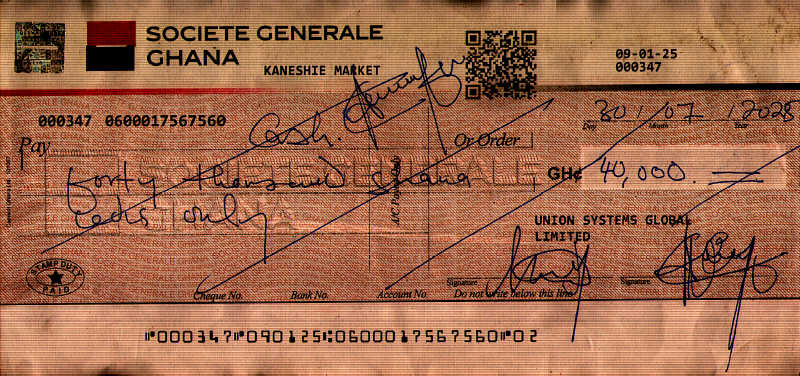 SOCIETE GENERALE
GHANA
KANESHIE MARKET
09-01-25
000347
000347 0600017567560
30/07/2025
Day Month Year
Pay Cash. Or Order
forty thousand Ghana
cedis only
GH¢ 40,000.
A/C Payee Only
UNION SYSTEMS GLOBAL
LIMITED
STAMP DUTY
PAID
Signature Signature
Cheque No. Bank No. Account No. Do not write below this line
⑈000347⑈090125⑆0600017567560⑈02